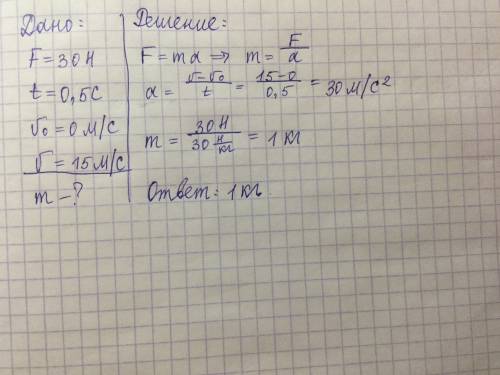 Дано:
F = 30 Н
t = 0,5 с
v₀ = 0 м/с
v = 15 м/с
m - ?
Решение:
F = ma ⇒ m = F/a
a = (v - v₀)/t = (15 - 0)/0,5 = 30 м/с²
m = 30 Н/(30 Н/кг) = 1 кг
Ответ: 1 кг.